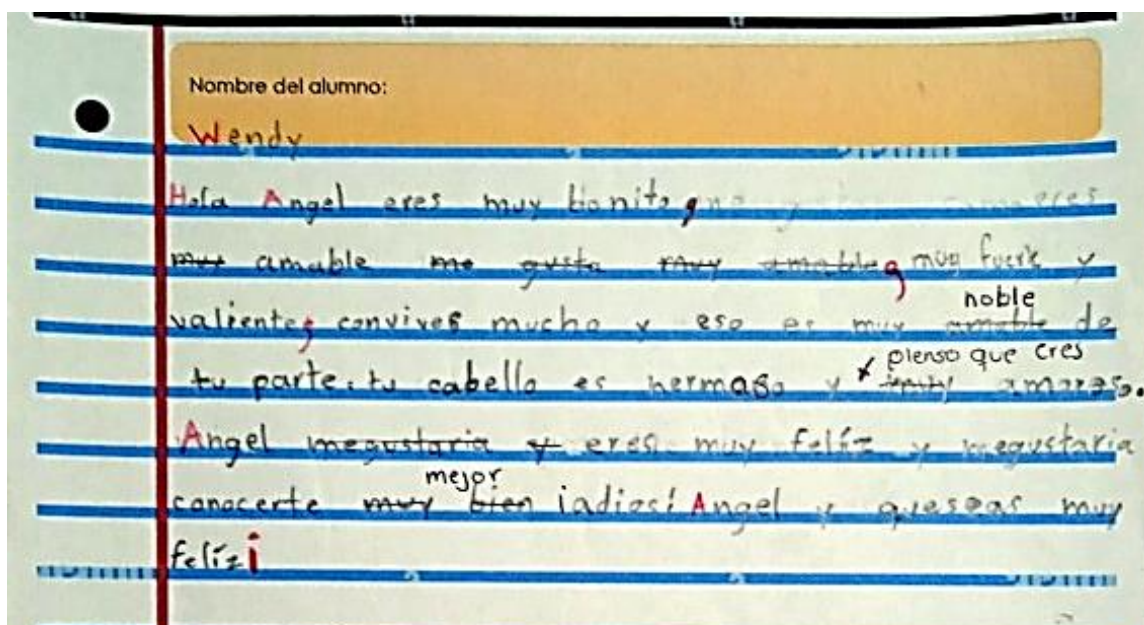 Nombre del alumno:
Wendy
Hola Angel eres muy bonito, eres
muy amable me gusta muy amable, muy fuerte y
valiente, convives mucho y eso es muy amable noble de
tu parte. tu cabello es hermoso y pienso que eres amoroso.
Angel megustaria y eres muy felíz y megustaria
conocerte muy bien mejor ¡adios! Angel y queseas muy
felíz¡